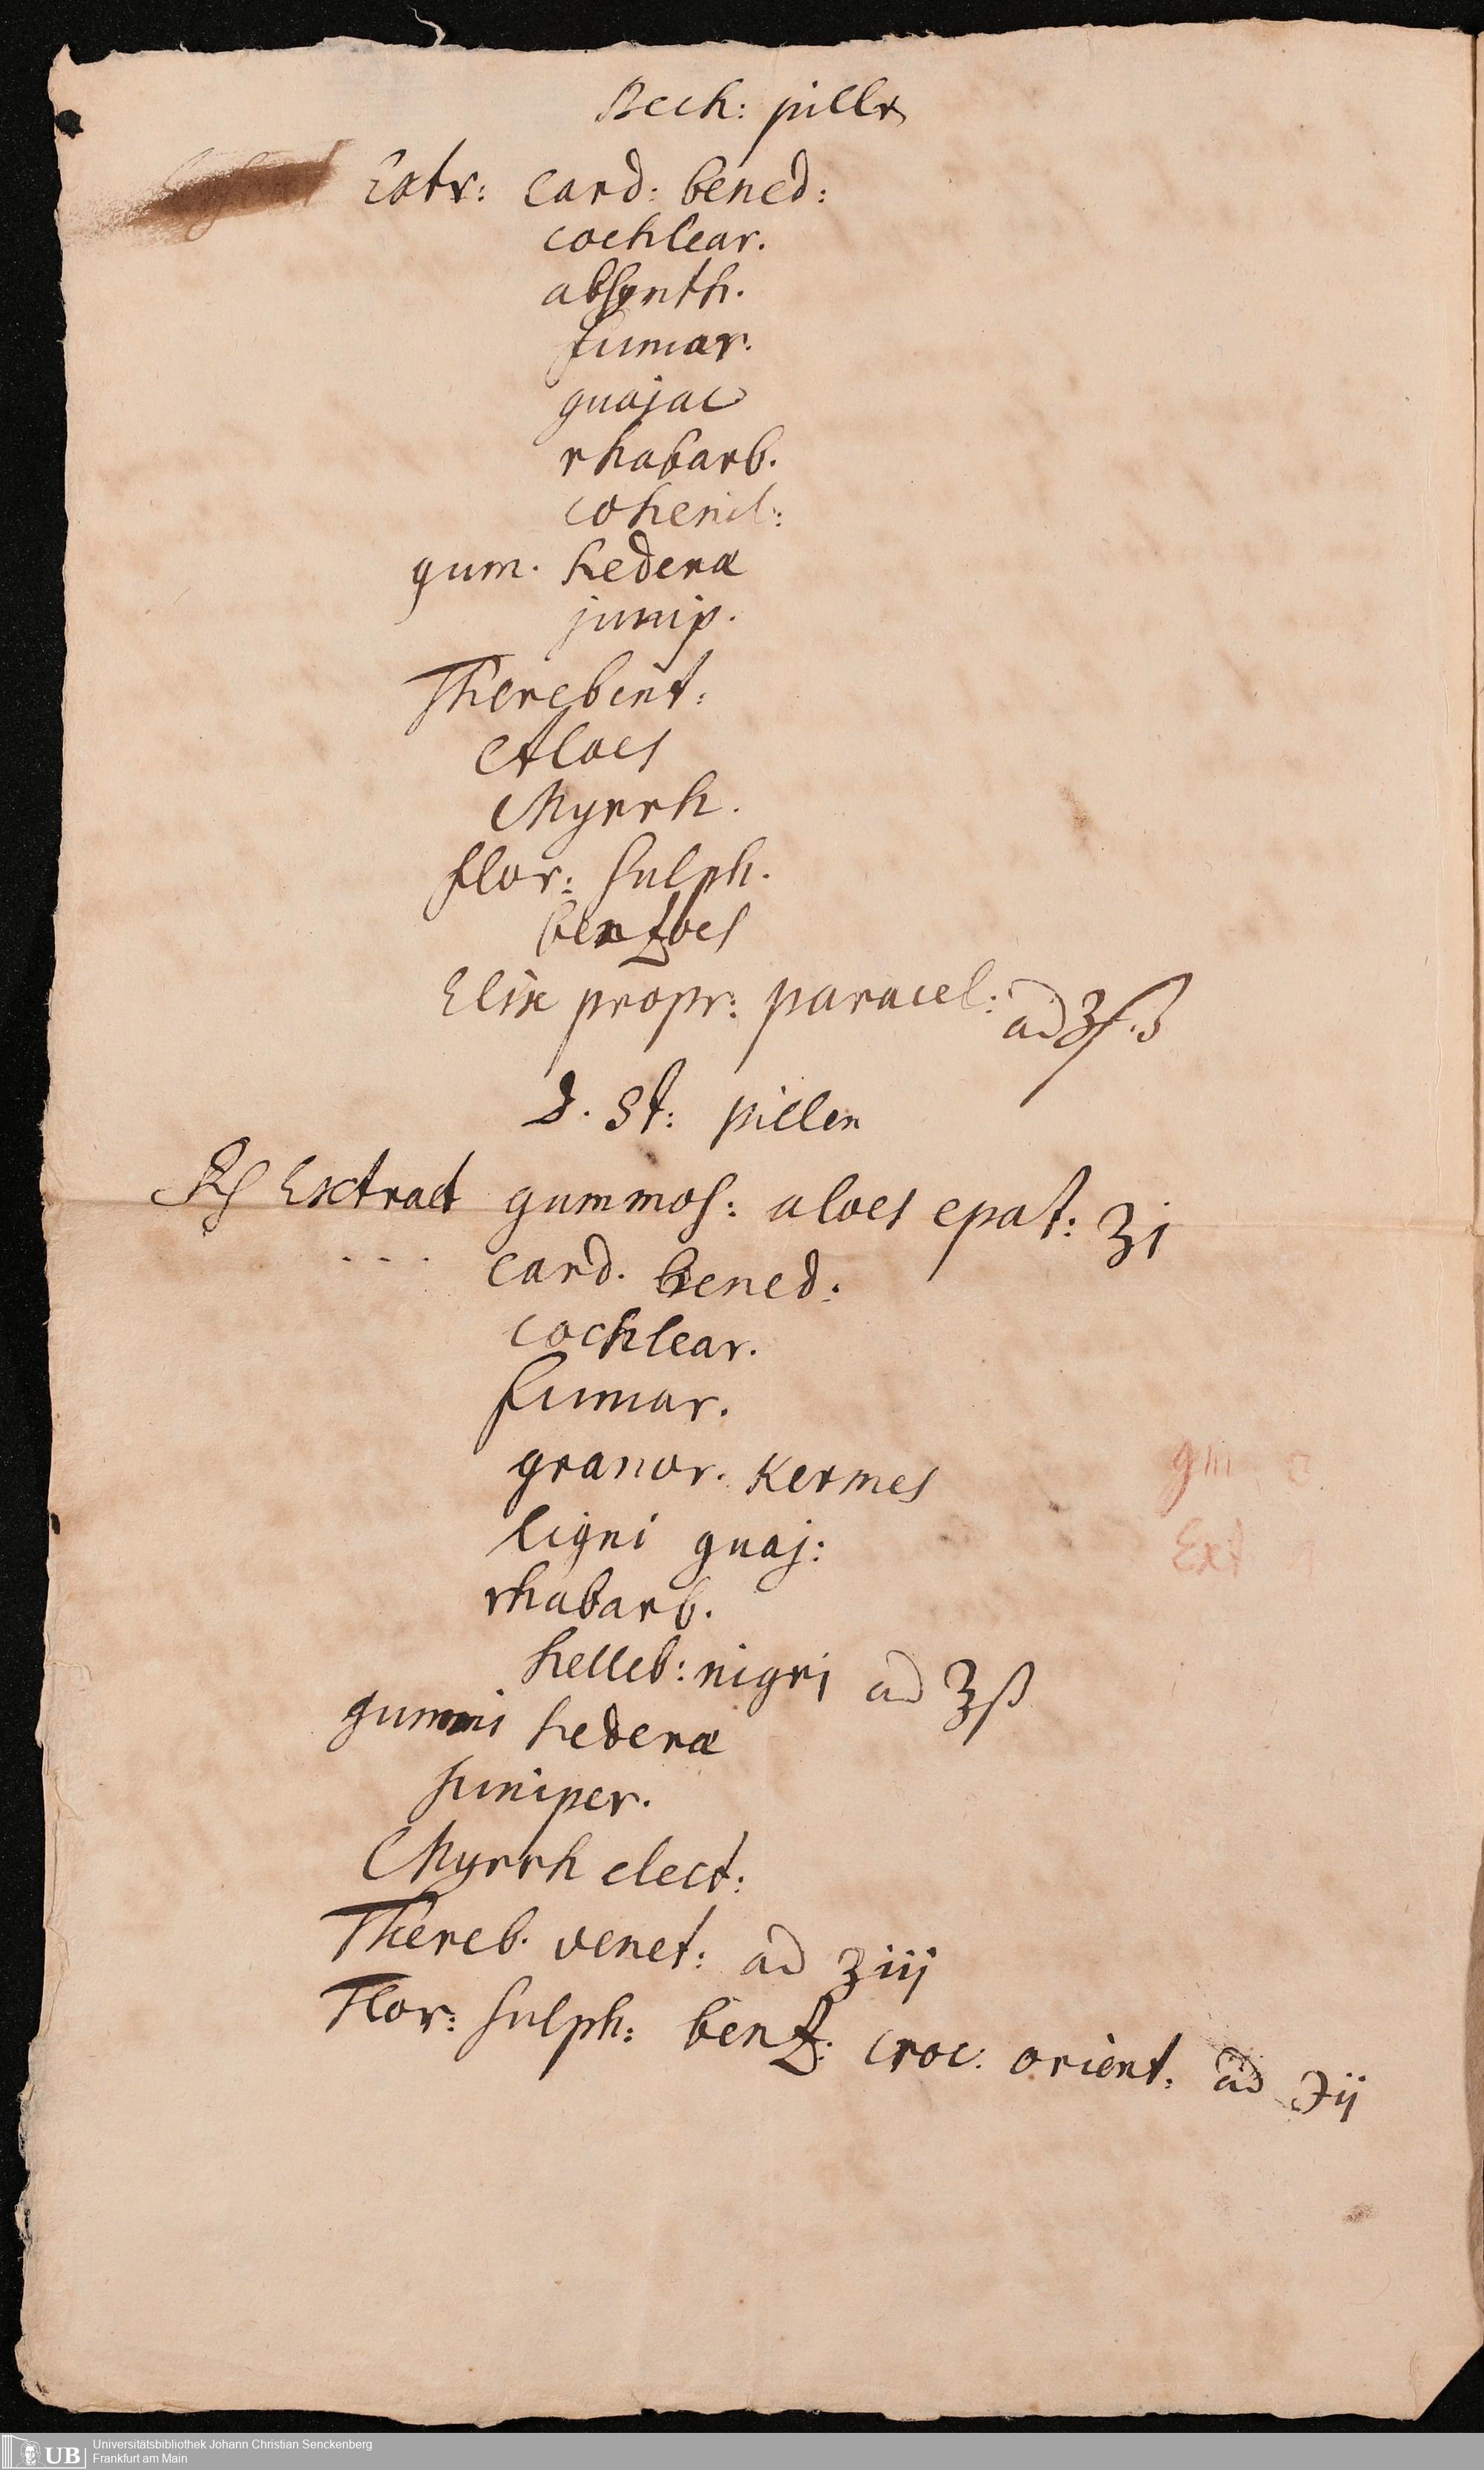 Bech: pillx
Extr: card: bened:
cochlear.
absynth.
fumar.
guajac
rhabarb.
gum. hederæ
junip.
Therebint:
Aloes
Myrrh.
flor: sulph.
benzoes
Elix propr: paracel: ad ʒ
D. St: pillen
℞ Extract gummos: aloes epat: ʒi
- - - card. bened:
cochlear.
fumar.
granor. Kermes
ligni guaj:
rhabarb.
helleb: nigri ad ʒß
gummi hederæ
Juniper.
Myrrh elect:
Thereb. venet: ad ʒiij
Flor: sulph: benz: croc: orient: ad ℈ij
gm
Ext
UB
Universitätsbibliothek Johann Christian Senckenberg
Frankfurt am Main